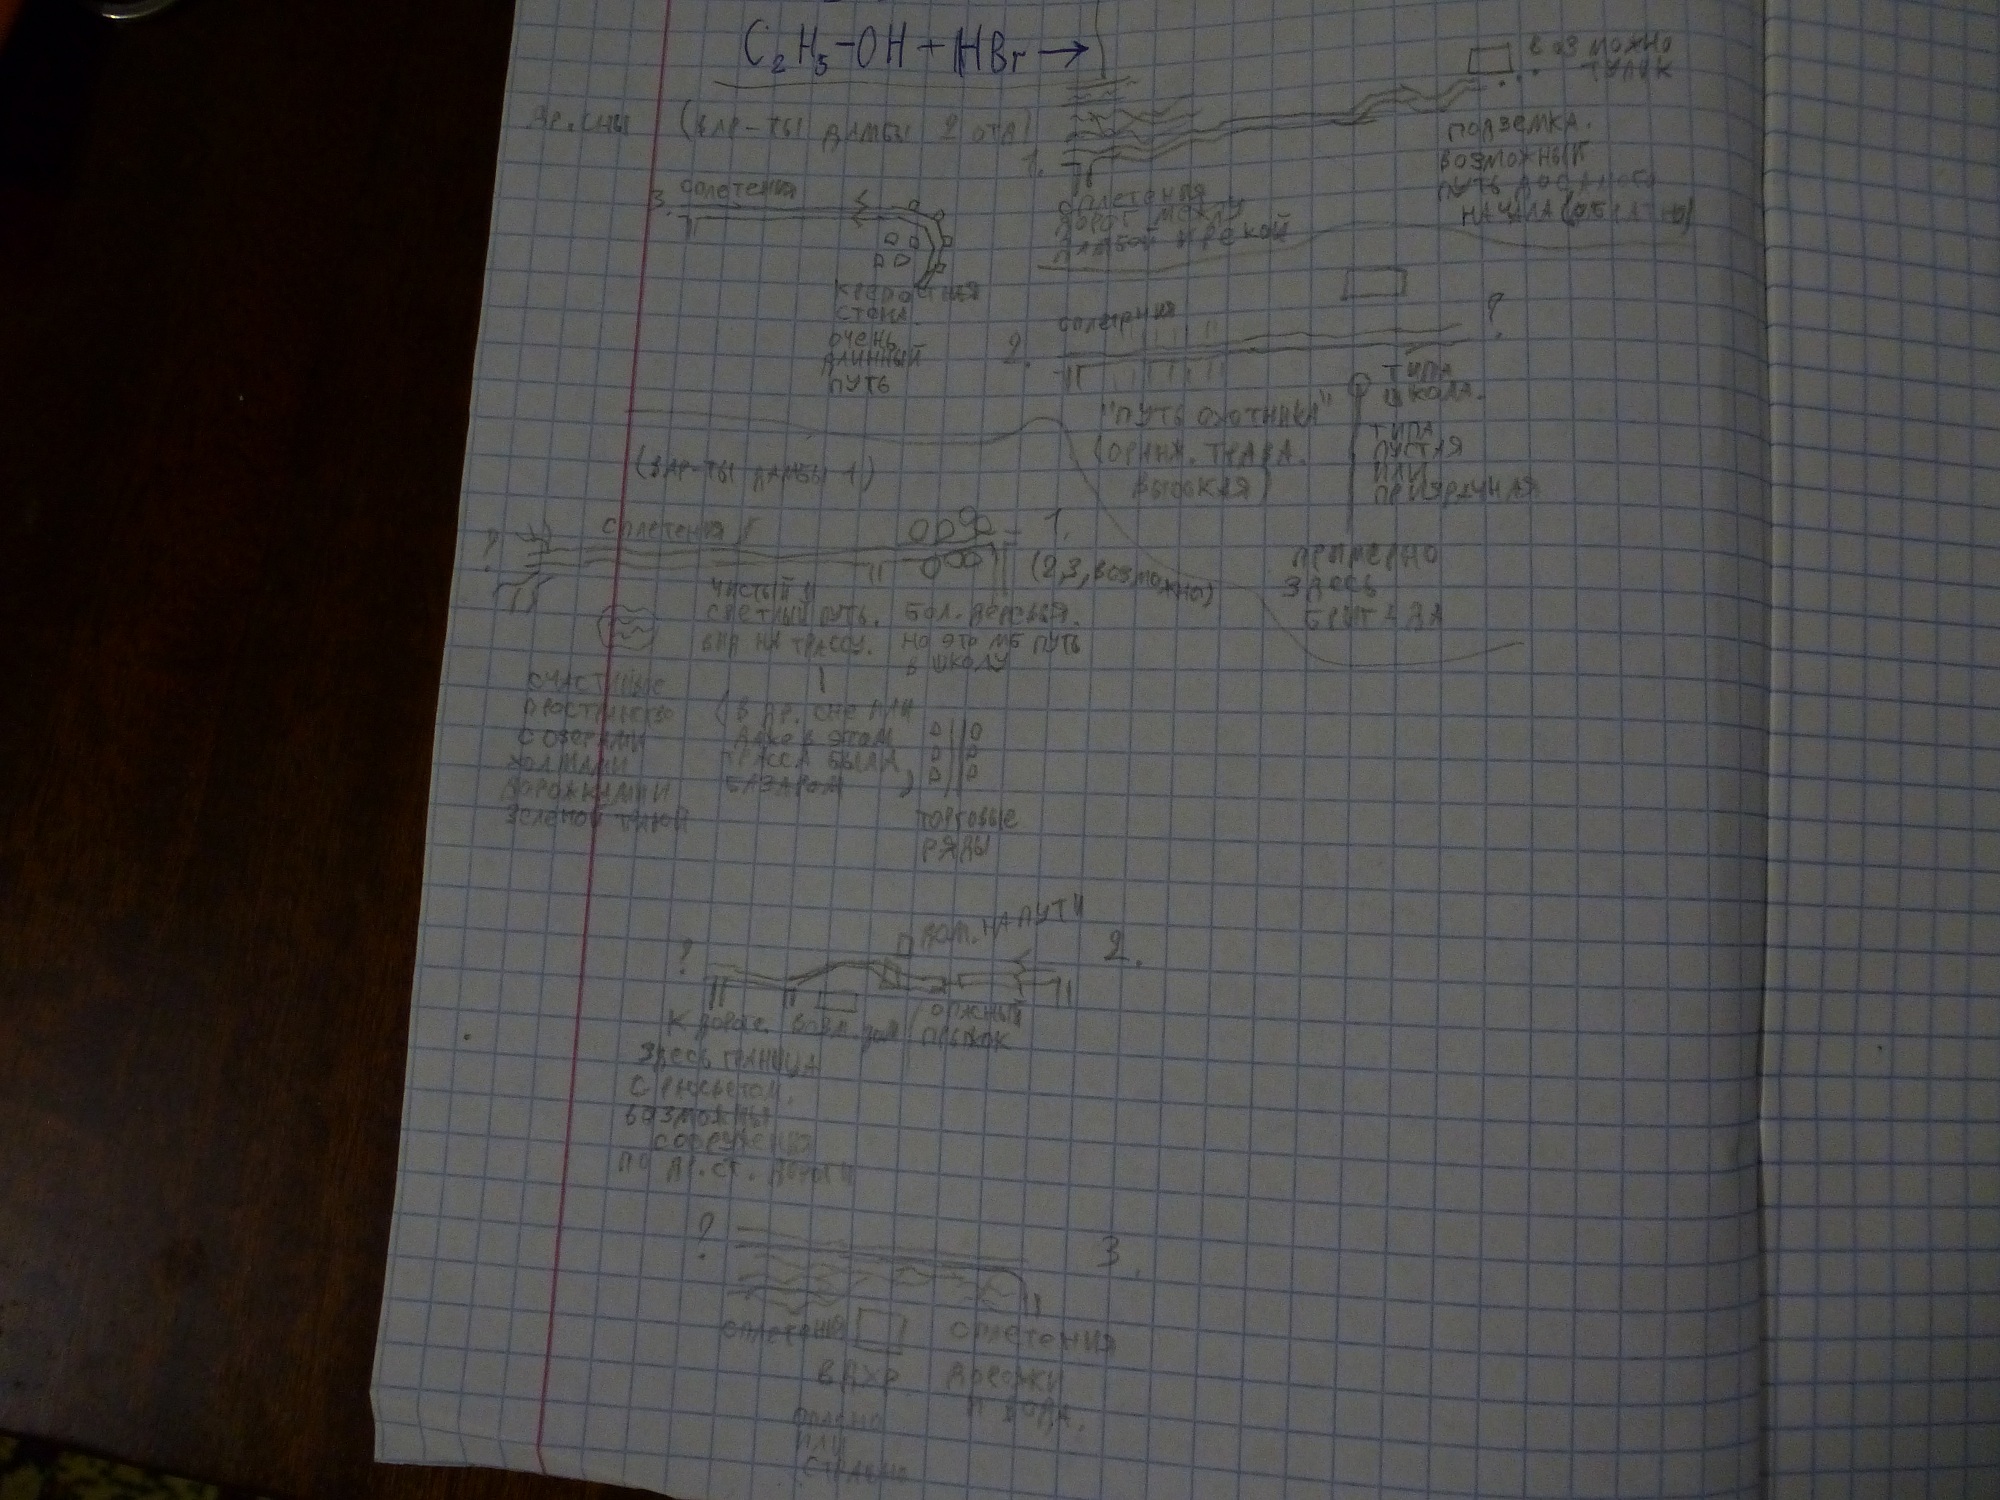 C₂H₅-OH + HBr →
возможно
тупик
др. сны (вар-ты дамбы 2 отд)
1.
подземка.
возможный
путь
начала (обратно)
3. сплетения
сплетения
дорог между
дамбой и рекой
крепостная
стена.
очень
длинный
путь
2. сплетения ?
типа
школа.
типа
пустая
или
призрачная
"путь охотника"
(оранж. трава.
высокая)
(вар-ты дамбы 1)
? сплетения 1.
(2,3, возможно)
примерно
здесь
чистый и
светлый путь.
вид на трассу.
бол. деревья.
но это мб путь
в школу
счастливые
пространство
с озерами
холмами
дорожками и
зеленой
(в др. сне или
даже в этом
трасса была
базаром)
торговые
ряды
? дом. на пути 2.
к дороге.
прыжок
здесь граница
с рассветом.
возможны
сооружения
по др. ст. дороги
? 3.
сплетения сплетения
вдхр
и вода.
или